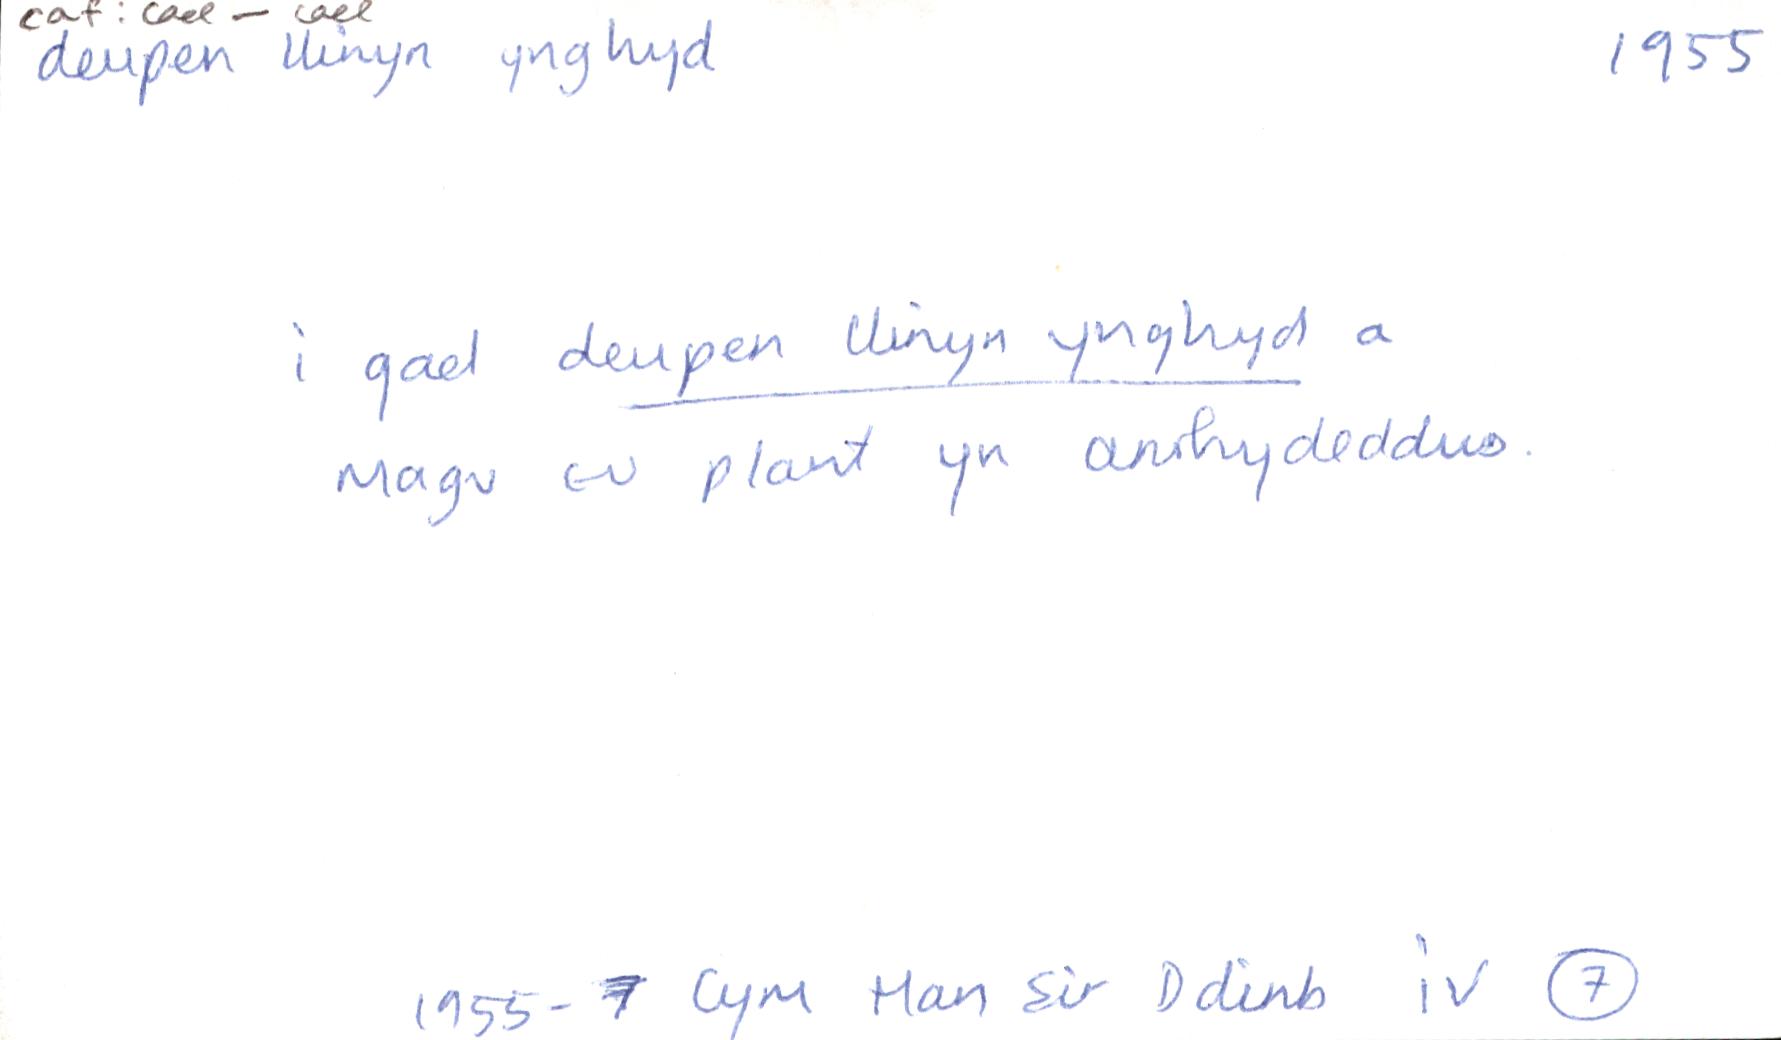 caf: cael – cael
deupen llinyn ynghyd 1955
i gael deupen llinyn ynghyd a
Magu eu plant yn anrhydeddus.
1955-7 Cym Han Sir Ddinb iv 7